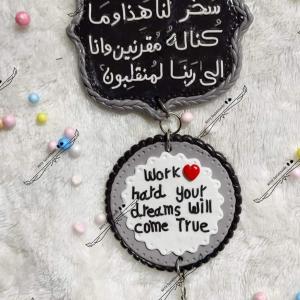 سخر لنا هذا وما
كنا له مقرنين وانا
الى ربنا لمنقلبون
Work
hard your
dreams will
come True